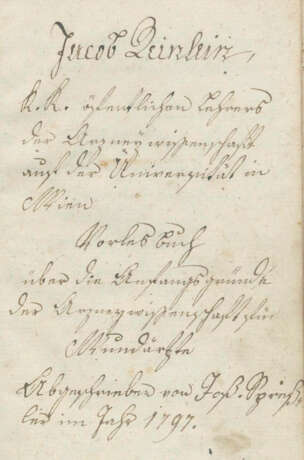 Jacob Reinlein,
K. K. öfentlichen Lehrers
der Arzneywissenschaft
auf der Universität in
Wien
Vorlesbuch
über die Anfangsgründe
der Arzneywissenschaft für
Wundärzte
Abgeschrieben von Jos.
ler im Jahr 1797.